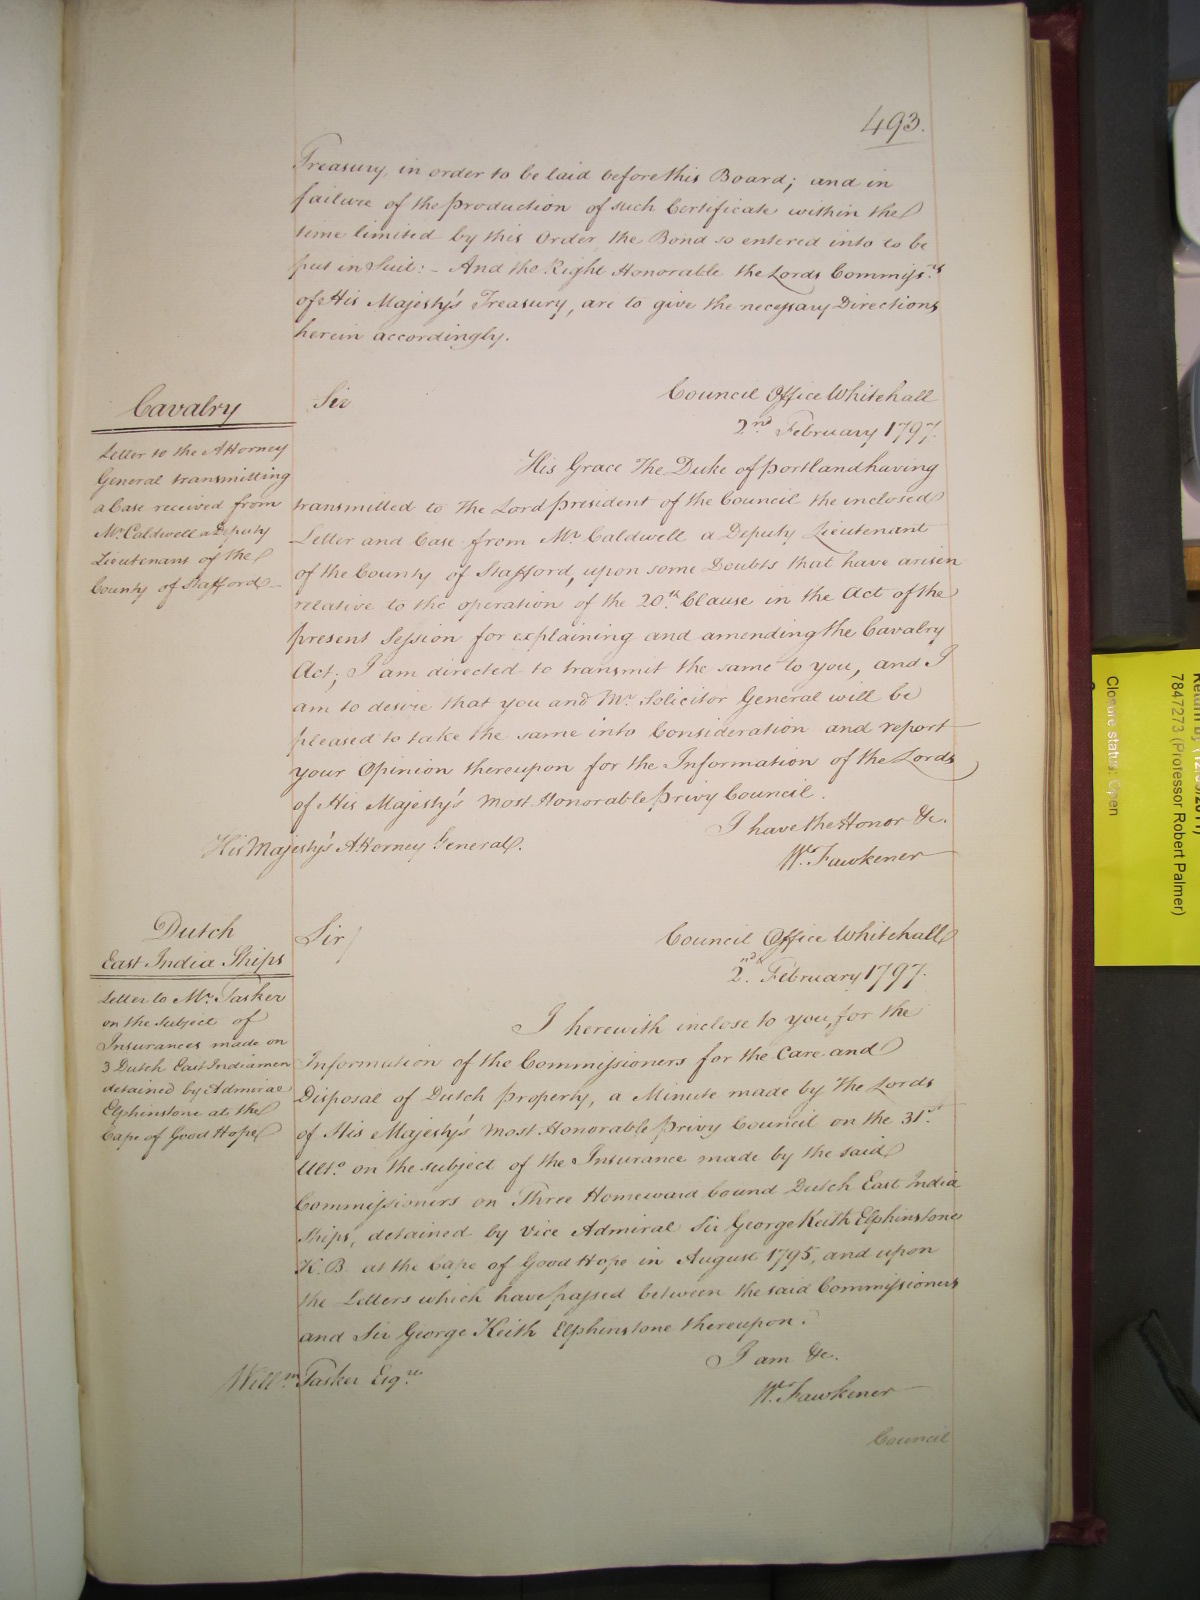 493.
Treasury, in order to be laid before this Board; and in
failure of the production of such Certificate within the
time limited by this Order, the Bond so entered into to be
put in Suit: - And the Right Honorable the Lords Commissrs
of His Majesty's Treasury, are to give the necessary Directions
herein accordingly.
Cavalry
Letter to the Attorney
General transmitting
a Case received from
Mr. Caldwell a Deputy
Lieutenant of the
County of Stafford
Sir
Council Office Whitehall
2nd February 1797.
His Grace The Duke of Portland having
transmitted to The Lord President of the Council the inclosed
Letter and Case from Mr. Caldwell a Deputy Lieutenant
of the County of Stafford, upon some Doubts that have arisen
relative to the operation of the 20th Clause in the Act of the
present Session for explaining and amending the Cavalry
Act; I am directed to transmit the same to you, and I
am to desire that you and Mr. Solicitor General will be
pleased to take the same into Consideration and report
your Opinion thereupon for the Information of the Lords
of His Majesty's most Honorable Privy Council.
I have the Honor &c.
His Majesty's Attorney General.
W. Fawkener
Dutch
East India Ships
Letter to Mr. Tasker
on the subject of
Insurances made on
3 Dutch East Indiamen
detained by Admiral
Elphinstone at the
Cape of Good Hope
Sir/
Council Office Whitehall
2nd February 1797.
I herewith inclose to you, for the
Information of the Commissioners for the Care and
Disposal of Dutch property, a Minute made by The Lords
of His Majesty's most Honorable Privy Council on the 31st
Ulto. on the subject of the Insurance made by the said
Commissioners on Three Homeward bound Dutch East India
Ships, detained by Vice Admiral Sir George Keith Elphinstone
K.B. at the Cape of Good Hope in August 1795, and upon
the Letters which have passed between the said Commissioners
and Sir George Keith Elphinstone thereupon.
I am &c.
Willm. Tasker Esqre.
W. Fawkener
Council
7847273 (Professor Robert Palmer)
Closure status: Open